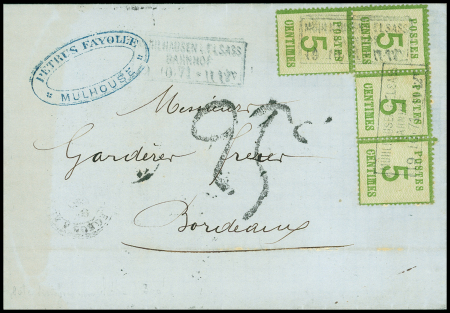 PETRUS FAYOLLE
MULHOUSE
MÜLHAUSEN i. ELSASS
BAHNHOF
POSTES
5
CENTIMES
POSTES
5
CENTIMES
POSTES
5
CENTIMES
POSTES
5
CENTIMES
25c
Messieurs
Garderer Freres
Bordeaux